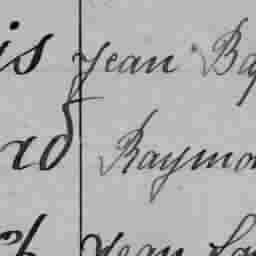 is Jean Ba
rd Raymo
Jean